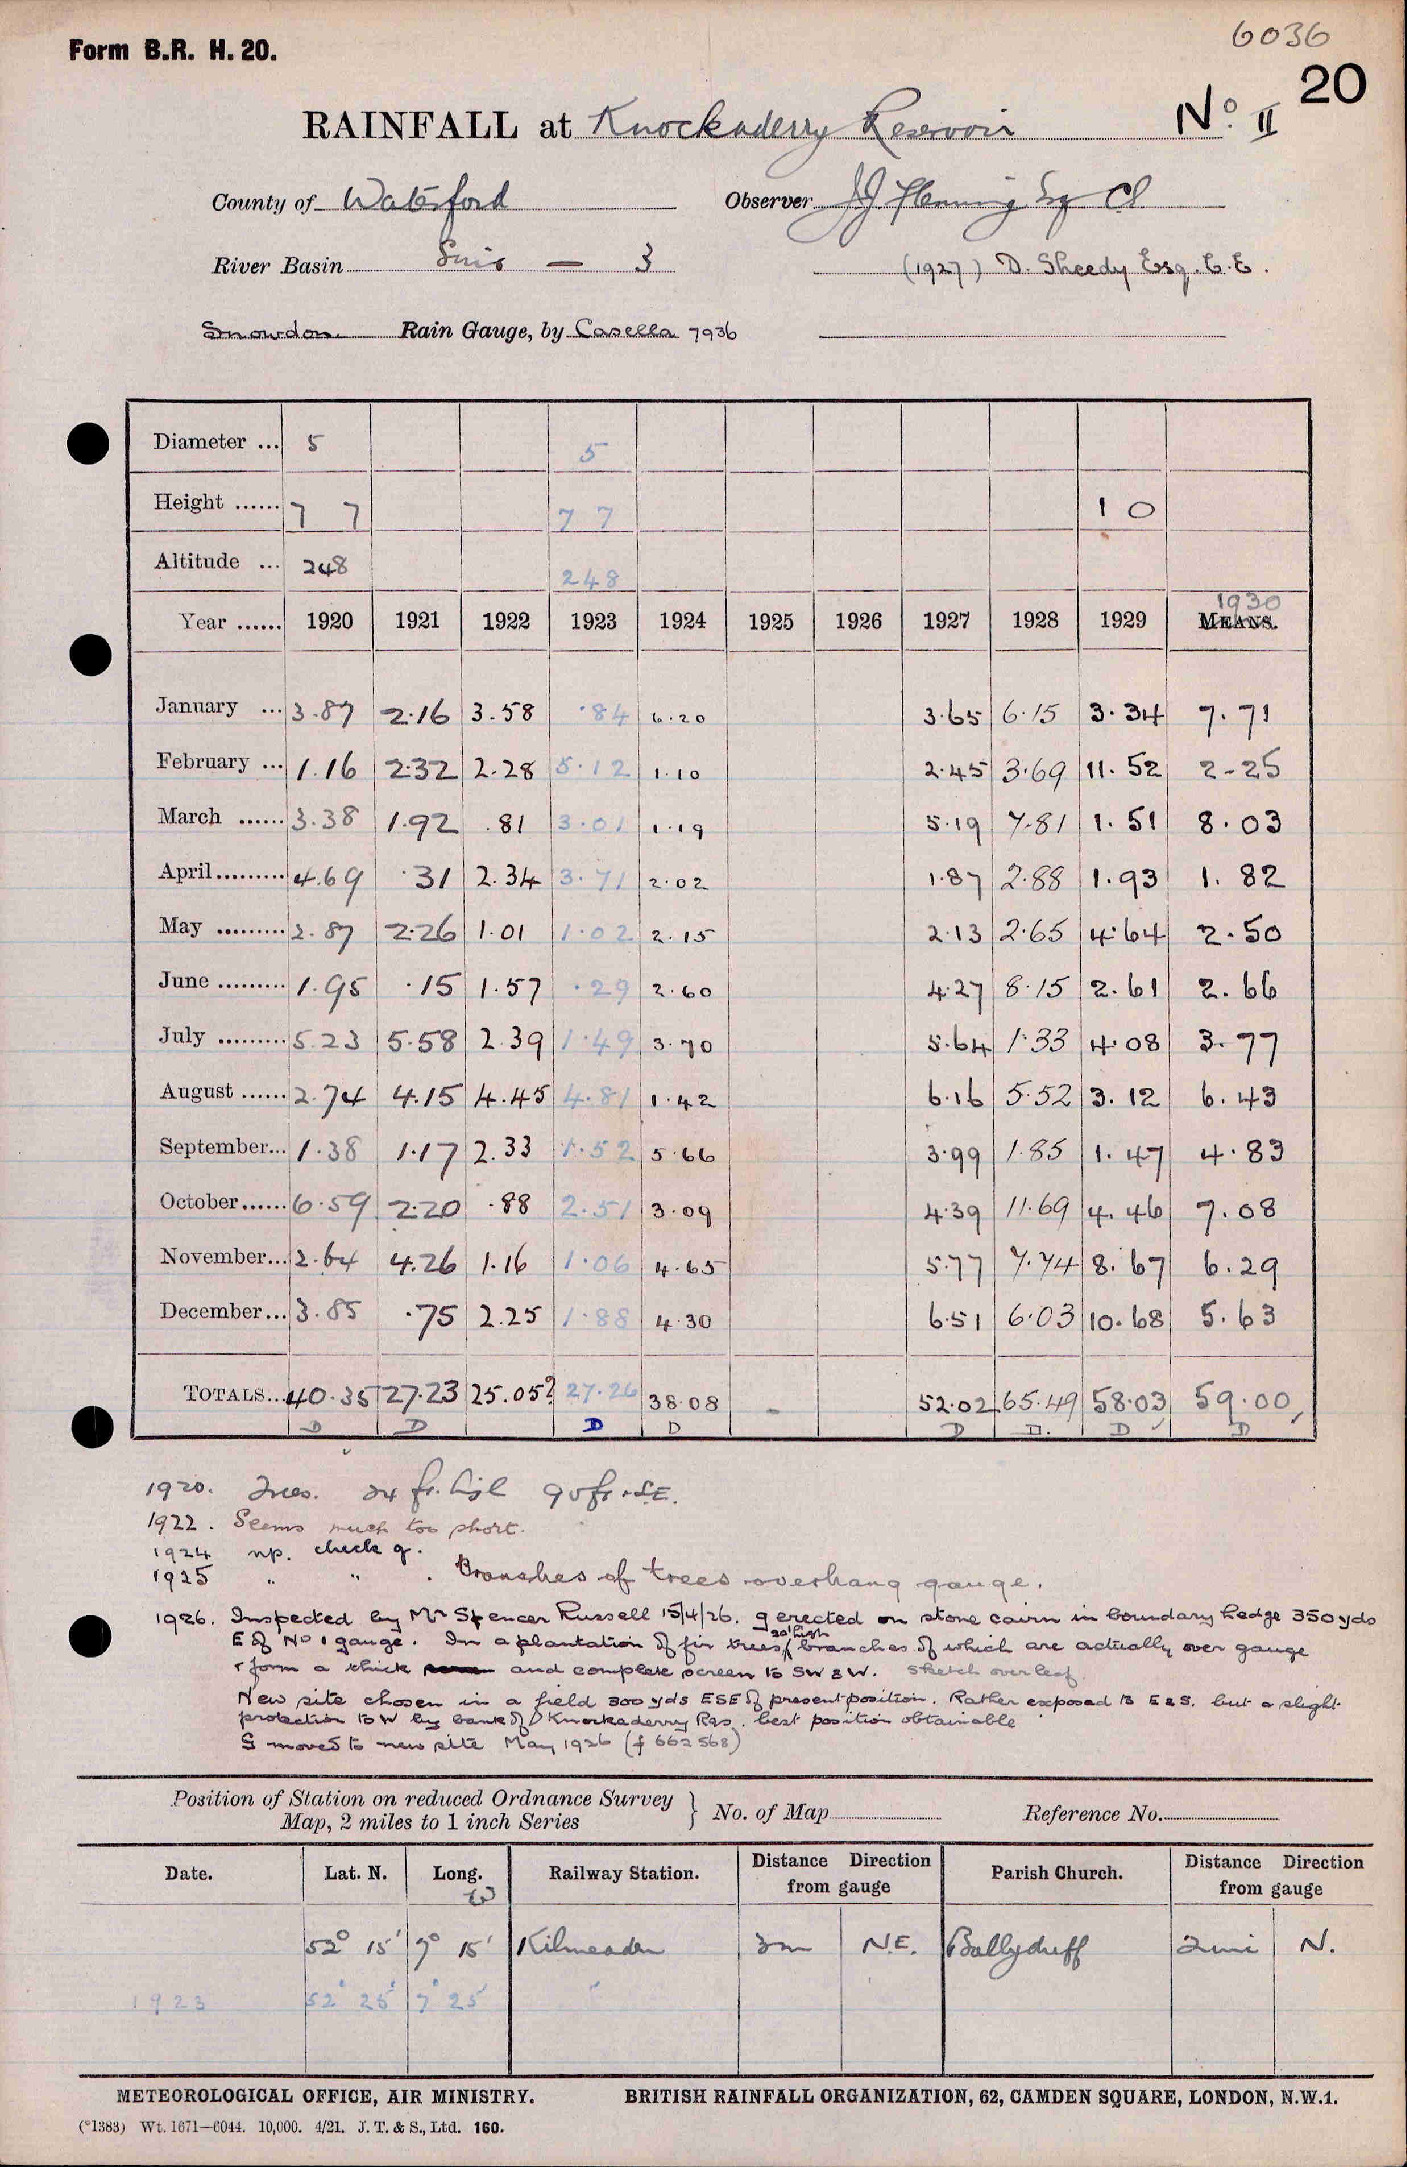 6036
Form B.R. H. 20.
20
RAINFALL at Knockaderry Reservoir No. II
County of Waterford Observer J.J. Fleming Esq CE
River Basin Suir — 3 (1927) D. Sheedy Esq. C.E.
Snowdon Rain Gauge, by Casella 7936
Diameter ... 5 5
Height ...... 7 7 7 7 1 0
Altitude ... 248 248
1930
Year ...... 1920 1921 1922 1923 1924 1925 1926 1927 1928 1929 MEANS.
January ... 3.87 2.16 3.58 .84 6.20 3.65 6.15 3.34 7.71
February ... 1.16 2.32 2.28 5.12 1.10 2.45 3.69 11.52 2-25
March ...... 3.38 1.92 .81 3.01 1.19 5.19 7.81 1.51 8.03
April......... 4.69 .31 2.34 3.71 2.02 1.87 2.88 1.93 1.82
May ......... 2.87 2.26 1.01 1.02 2.15 2.13 2.65 4.64 2.50
June ......... 1.95 .15 1.57 .29 2.60 4.27 8.15 2.61 2.66
July ......... 5.23 5.58 2.39 1.49 3.70 5.64 1.33 4.08 3.77
August ...... 2.74 4.15 4.45 4.81 1.42 6.16 5.52 3.12 6.43
September... 1.38 1.17 2.33 1.52 5.66 3.99 1.85 1.47 4.83
October...... 6.59 2.20 .88 2.51 3.09 4.39 11.69 4.46 7.08
November... 2.64 4.26 1.16 1.06 4.65 5.77 7.74 8.67 6.29
December... 3.85 .75 2.25 1.88 4.30 6.51 6.03 10.68 5.63
TOTALS... 40.35 27.23 25.05? 27.26 38.08 - 52.02 65.49 58.03 59.00
D D D D D D. D D
1920. Trees. 24 ft. high 90 ft. SE.
1922. Seems much too short.
1924 np. check g.
1925 " " . Branches of trees overhang gauge.
1926. Inspected by Mr Spencer Russell 15/4/26. g erected on stone cairn in boundary hedge 350 yds
E of No 1 gauge. In a plantation of fir trees 20' high branches of which are actually over gauge
& form a thick and complete screen to SW & W. Sketch overleaf
New site chosen in a field 300 yds ESE of present position. Rather exposed to E & S. but a slight
protection to W by bank of Knockaderry Res. best position obtainable
G moved to new site May 1926 (f 662568)
Position of Station on reduced Ordnance Survey
Map, 2 miles to 1 inch Series } No. of Map Reference No.
Date. Lat. N. Long. W Railway Station. Distance Direction from gauge Parish Church. Distance Direction from gauge
52° 15' 7° 15' Kilmeaden 3m N.E. Ballyduff 2mi N.
1923 52° 25' 7° 25'
METEOROLOGICAL OFFICE, AIR MINISTRY. BRITISH RAINFALL ORGANIZATION, 62, CAMDEN SQUARE, LONDON, N.W.1.
(*1383) Wt. 1671—6044. 10,000. 4/21. J. T. & S., Ltd. 160.